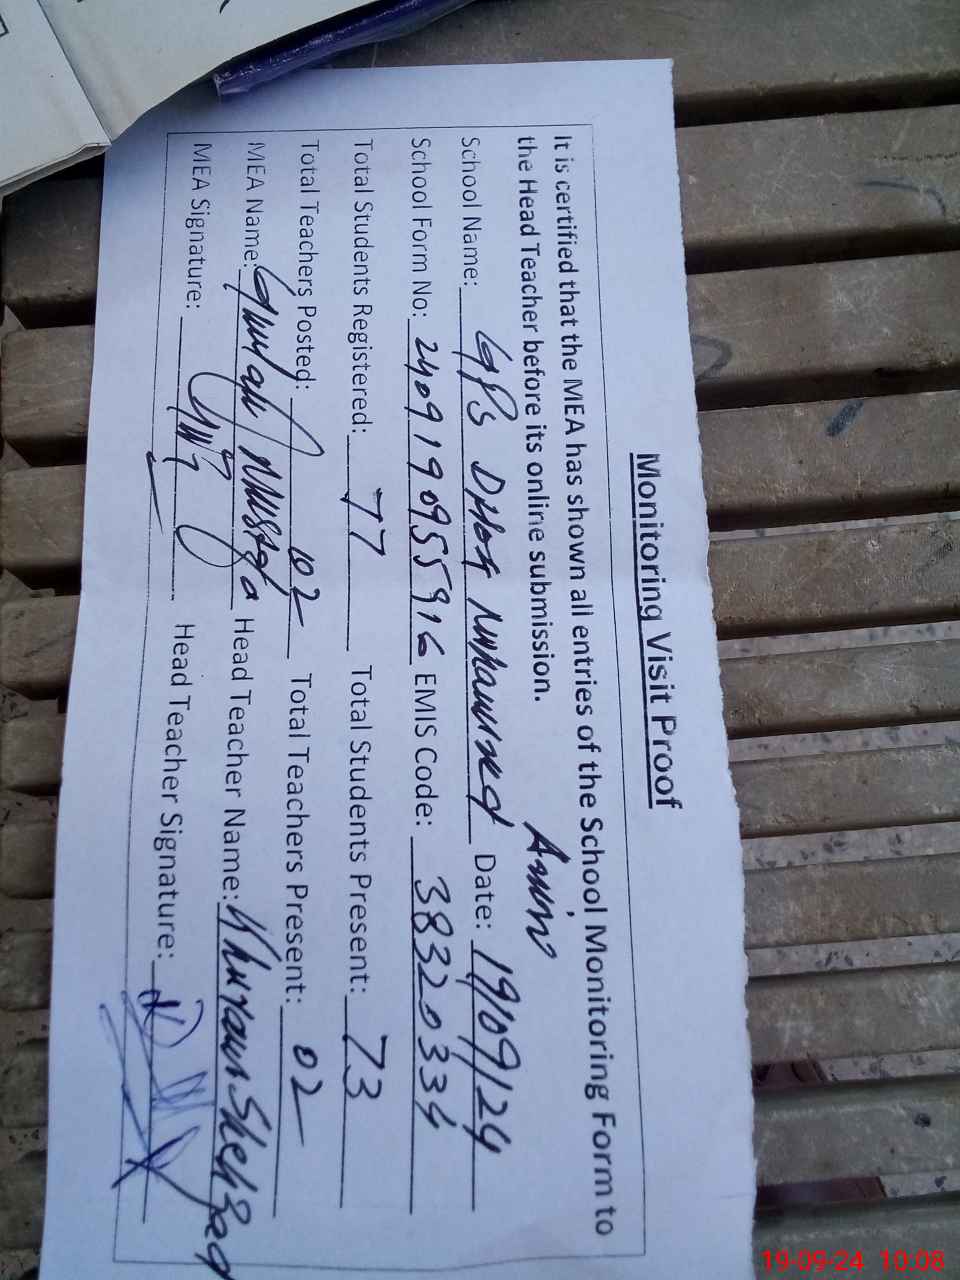 Monitoring Visit Proof
It is certified that the MEA has shown all entries of the School Monitoring Form to
the Head Teacher before its online submission. Amin
School Name: GPS DHOK MUHAMMAD Date: 19/09/24
School Form No: 2409190955916 EMIS Code: 38320334
Total Students Registered: 77 Total Students Present: 73
Total Teachers Posted: 02 Total Teachers Present: 02
MEA Name: Ghulam Mustafa Head Teacher Name: Khuram Shehzad
MEA Signature: Head Teacher Signature:
19-09-24 10:08